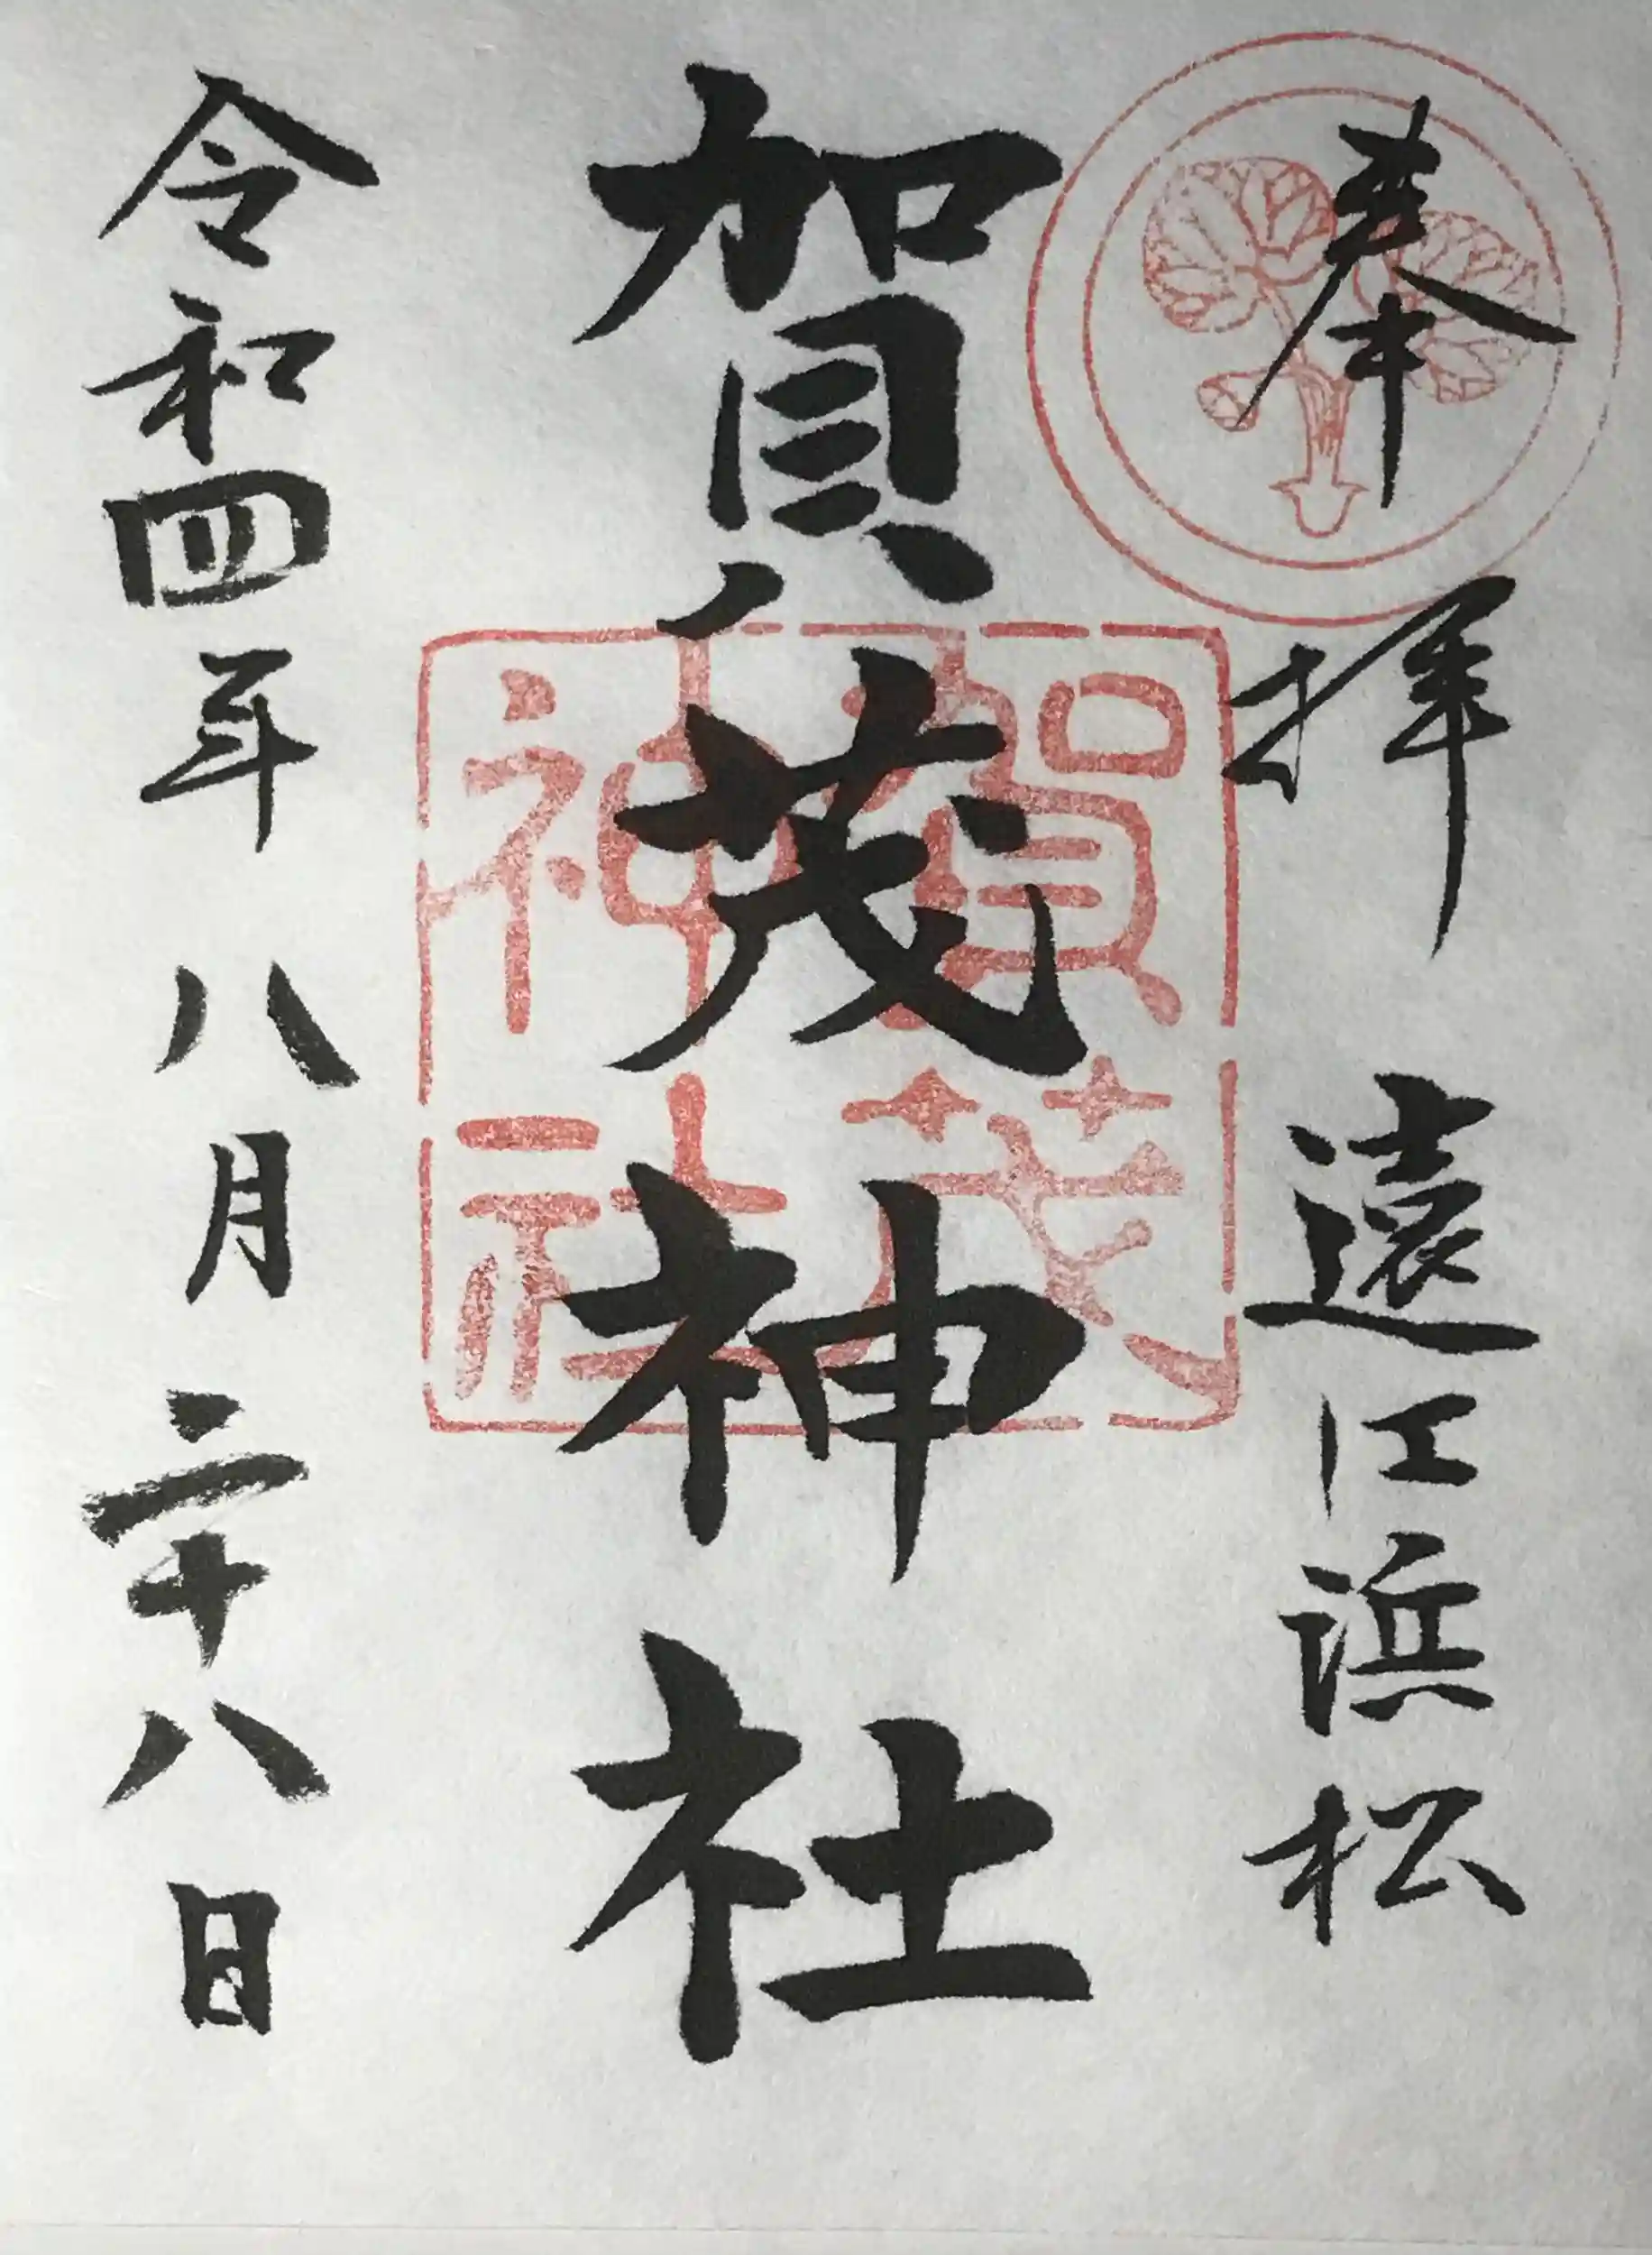 奉拝 遠江浜松
賀茂神社
賀茂
神社
令和四年八月二十八日